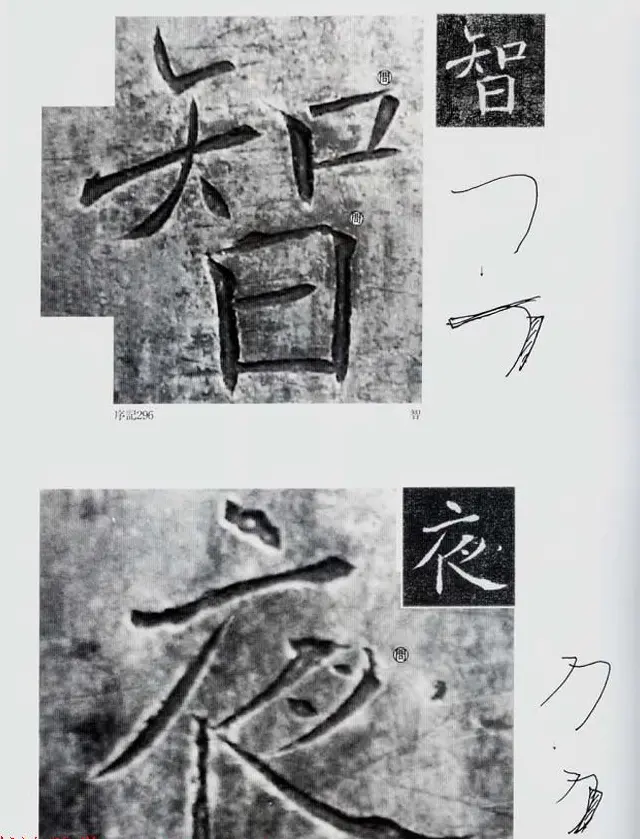 智
智
序記296
智
夜
夜